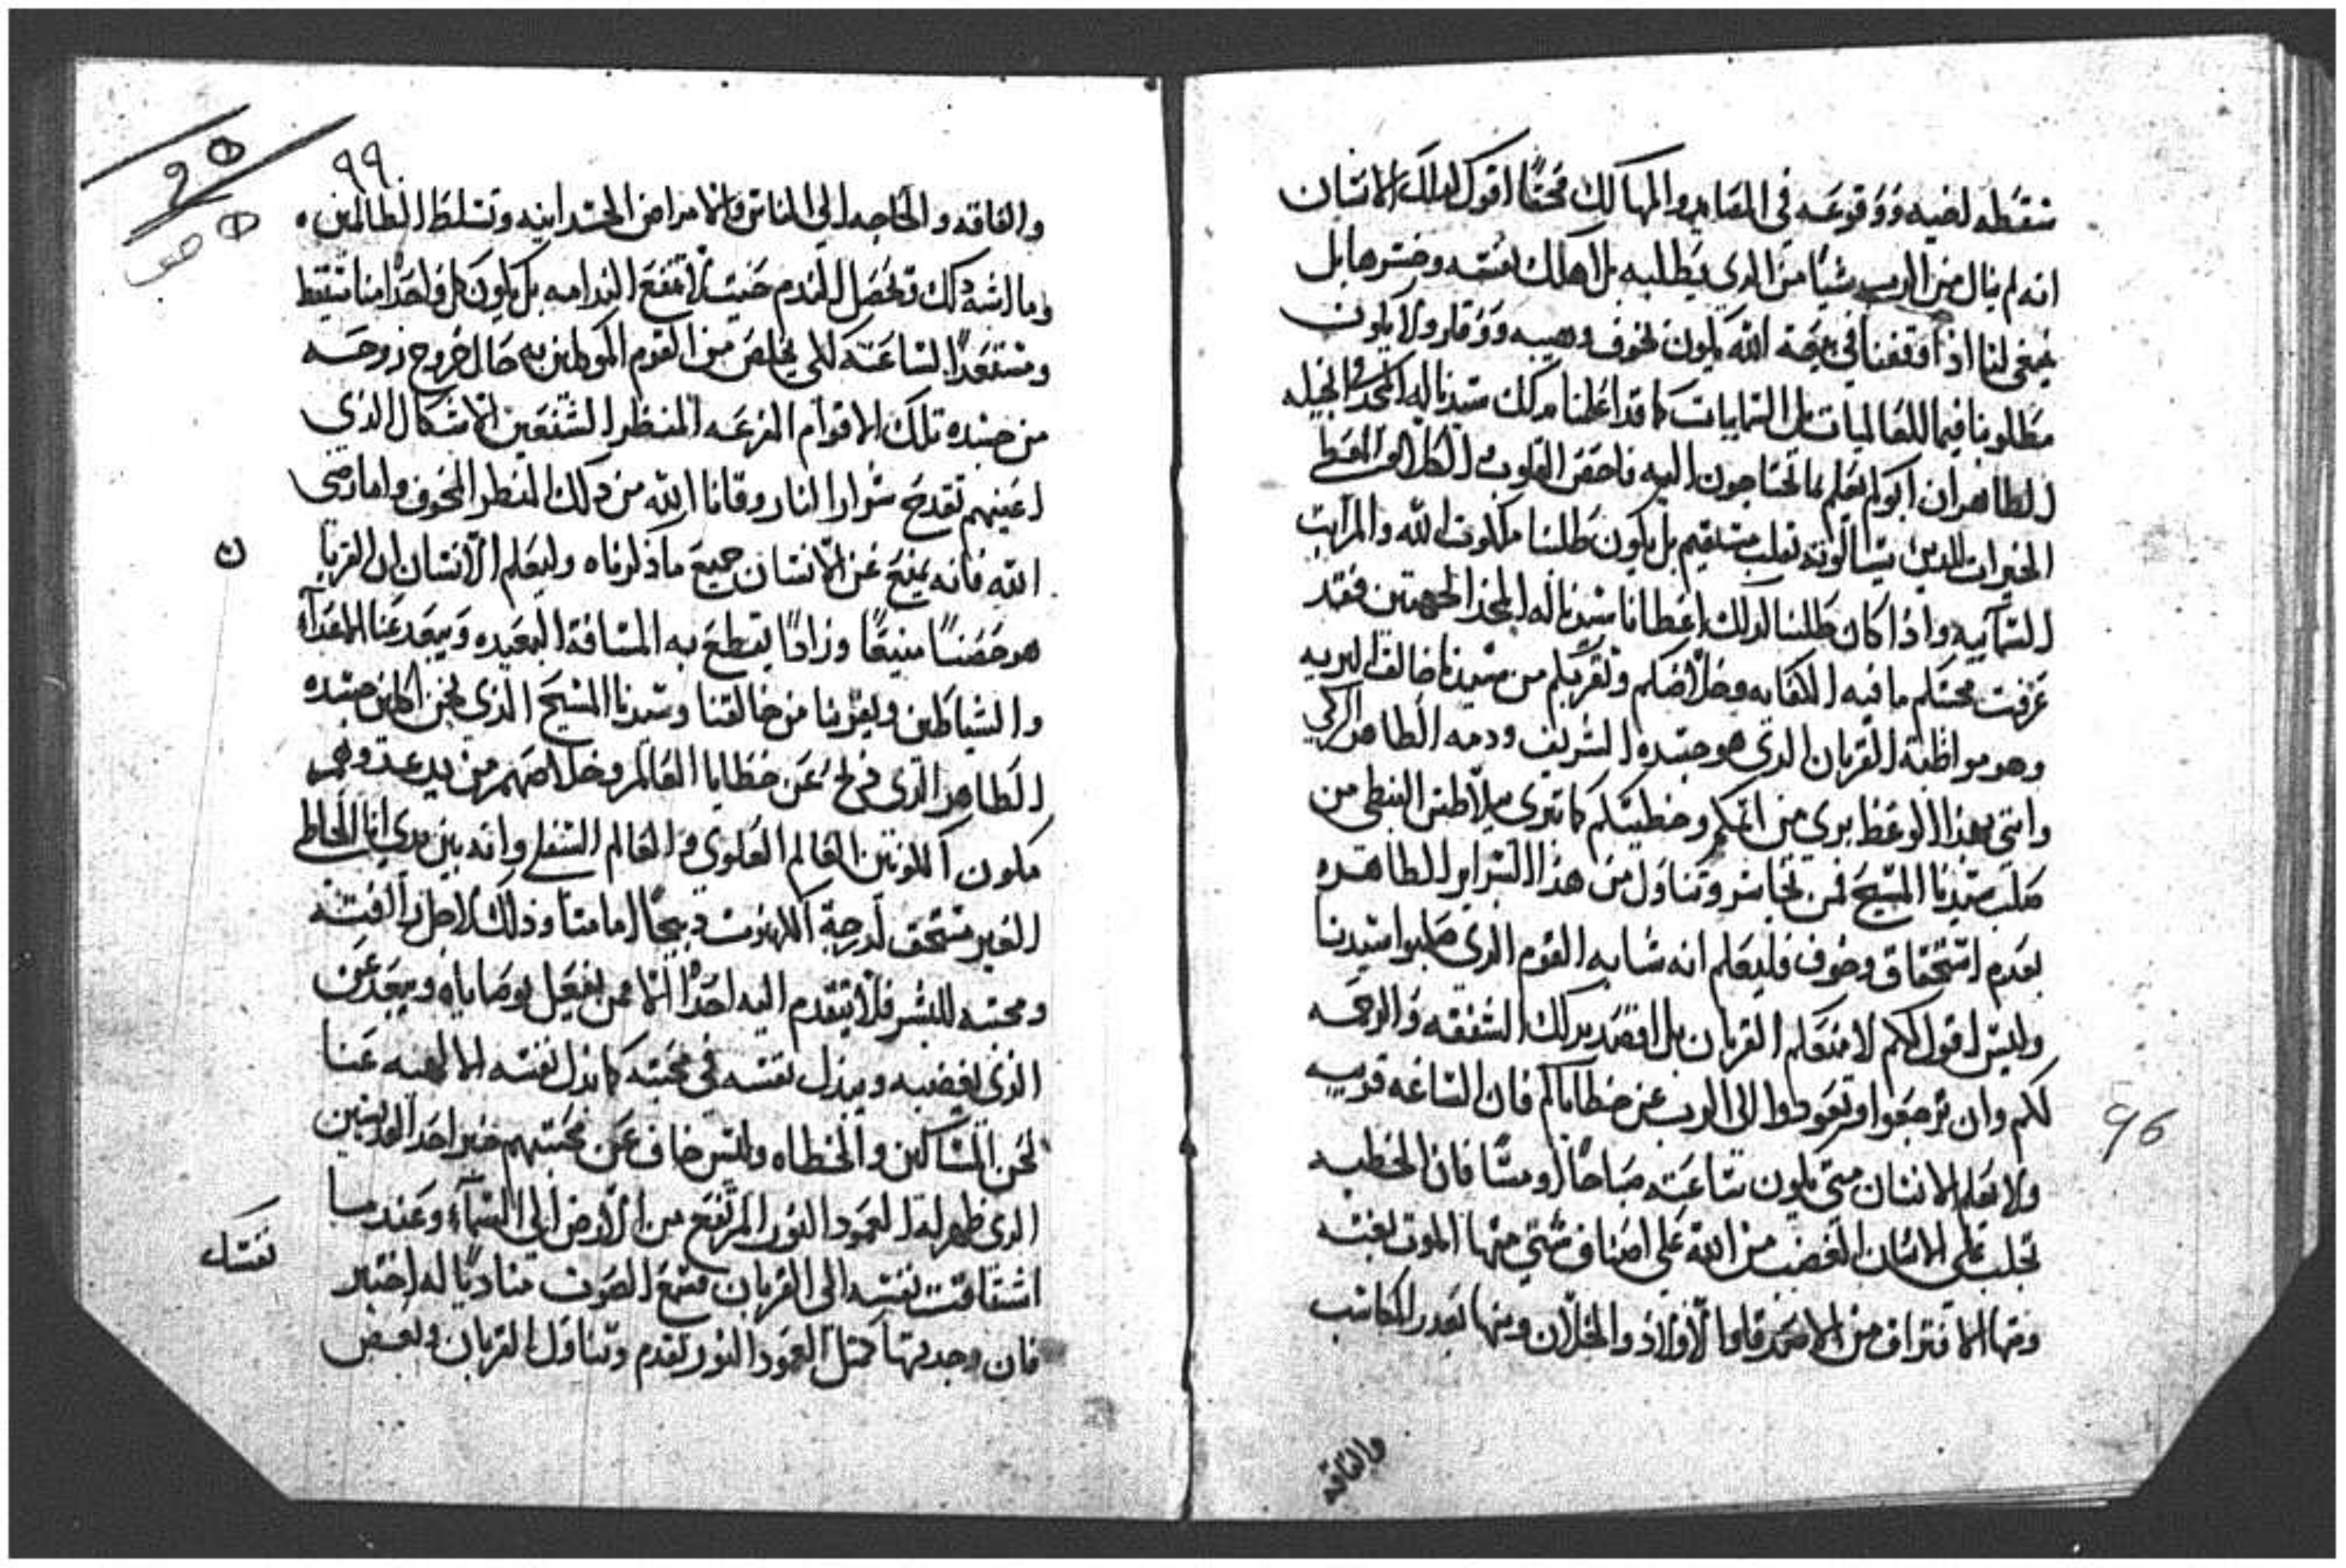 شقطه لغيه ووقوعه في المقابر والمهالك فحقًا اقول لذلك الانسان
انه لم ينال من الرب شيًا من الذي يطلبه بل اهلك نفسه وخسرها بل
ينبغي لنا اذا وقفنا في بيعة الله يكون بخوف وهيبه ووقار ولا يكون
مطلوبنا فيما للعالميات بل السماييات كما قد اعلمنا بذلك سيدنا له المجد في انجيله
الطاهر ان ابوكم يعلم بما تحتاجون اليه فاحفظ القلوب
الخيرات الذين يسالونه بقلب مستقيم بل يكون طلبنا ملكوت الله والمراتب
السماييه واذا كان طلبنا لذلك اعطانا سيدنا له المجد الجهتين فقد
عرفت محبتكم ما فيه الكفايه وخلاصكم وتقربكم من سيدنا خالق البريه
وهو مواظبة القربان الذي هو جسده الشريف ودمه الطاهر الزكي
وانتي بهذا الوعظ بري من اثمكم وخطيتكم كما تبرى بيلاطس البنطي من
صلب سيدنا المسيح فمن تجاسر وتناول من هذا السراير الطاهره
بعدم استحقاق وخوف فليعلم انه شابه القوم الذي صلبوا سيدنا
وليس اقول لكم لامنعكم القربان بل اقصد بذلك الشفقه والرحمه
لكم وان ترجعوا وتعودوا الى الرب عن خطاياكم فان الساعه قريبه
ولا يعلم الانسان متى يكون ساعته صباحًا او مسًا فان الخطيه
تجلب على الانسان الغضب من الله على اصناف شتي منها الموت بغته
ومنها الافتراق من الاصدقا والاولاد والخلان ومنها تعذر المكاسب
والفاقه
96
٩٩
والفاقه والحاجه الي الناس والامراض الجسدانيه وتسلط الظالمين ٠
وما اشبه ذلك وتحصل الندم حيث لا تنفع الندامه بل يكون كل واحدًا منا متيقظ
ومستعدًا لساعته لكي يخلص من القوم الموكلين به حال خروج روحه
من جسده تلك الاقوام الفزعه المنظر الشنعين الاشكال الذي
اعينهم تقدح شرار النار وقانا الله من ذلك المنظر المخوف واما رضى
الله فانه يمنع عن الانسان جميع ما ذكرناه وليعلم الانسان ان القربا
ن
هو حصنًا منيعًا وزادًا يقطع به المسافة البعيده ويبعد عنا الاعدآء
والشياطين ويقربنا من خالقنا وسيدنا المسيح الذي نحن اكلين جسده
الطاهر الذي ذبح عن خطايا العالم وخلاصهم من يد عدوهم
مكون الكونين العالم العلوي والعالم السفلي وانه بين يدي انا الخاطي
الغير مستحق لدرجة الكهنوت ذبيحًا امامنا وذلك لاجل رافته
ومحبته للبشر فلا يتقدم اليه احدًا الا ممن يفعل بوصاياه ويبعد عن
الذي يغضبه ويبذل نفسه في محبته كما بذل نفسه الالهيه عنا
نحن المساكين والخطاه وليس خاف عن محبتهم خبر احد القديسين
الذي ظهر له العمود النور المرتفع من الارض الي السمآء وعندما
اشتاقت نفسه الى القربان فسمع الصوت مناديًا له اختبر
نفسك
فان وجدتها كمثل العمود النور تقدم وتناول القربان وبعض